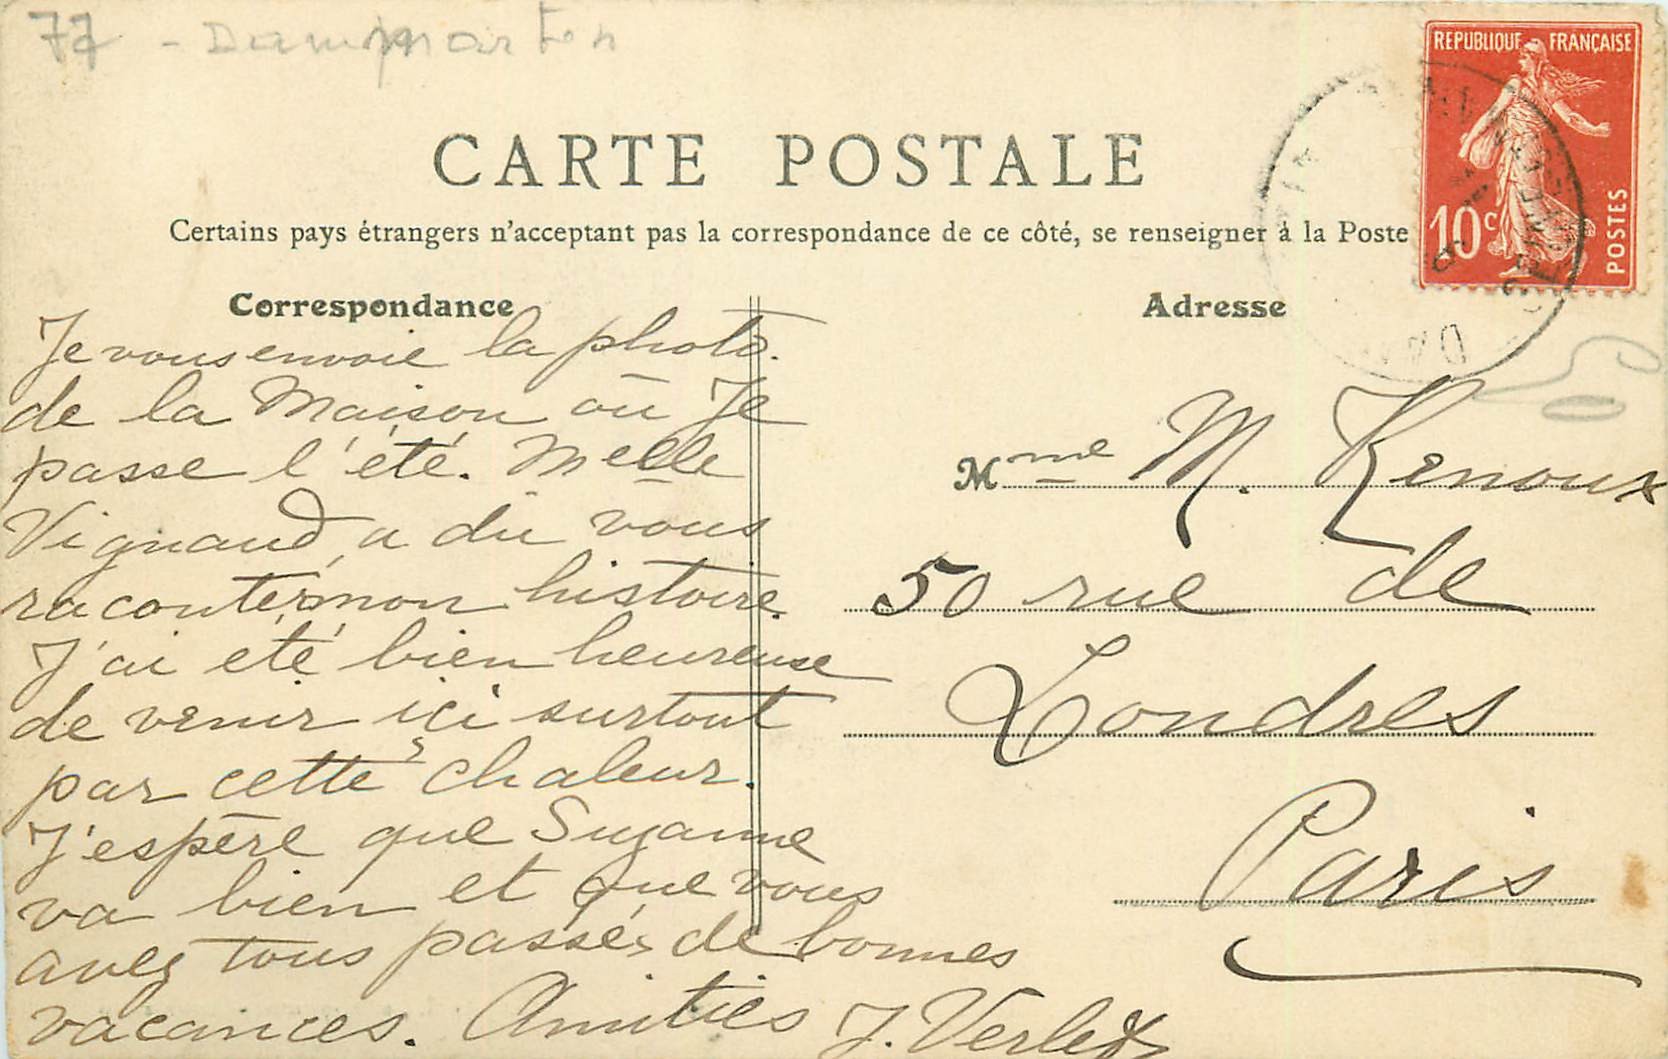 77 - Dammarten
REPUBLIQUE FRANÇAISE
10c
POSTES
CARTE POSTALE
Certains pays étrangers n'acceptant pas la correspondance de ce côté, se renseigner à la Poste
Correspondance
Je vous envoie la photo.
de la Maison où Je
passe l'été. Melle
Vignaud, a du vous
raconter mon histoire.
J'ai été bien heureuse
de venir içi surtout
par cette chaleur.
J'espère que Suzanne
va bien et que vous
avez tous passés de bonnes
vacances. Amitiés J. Verlet
Adresse
Mme M. Renoux
50 rue de
Londres
Paris